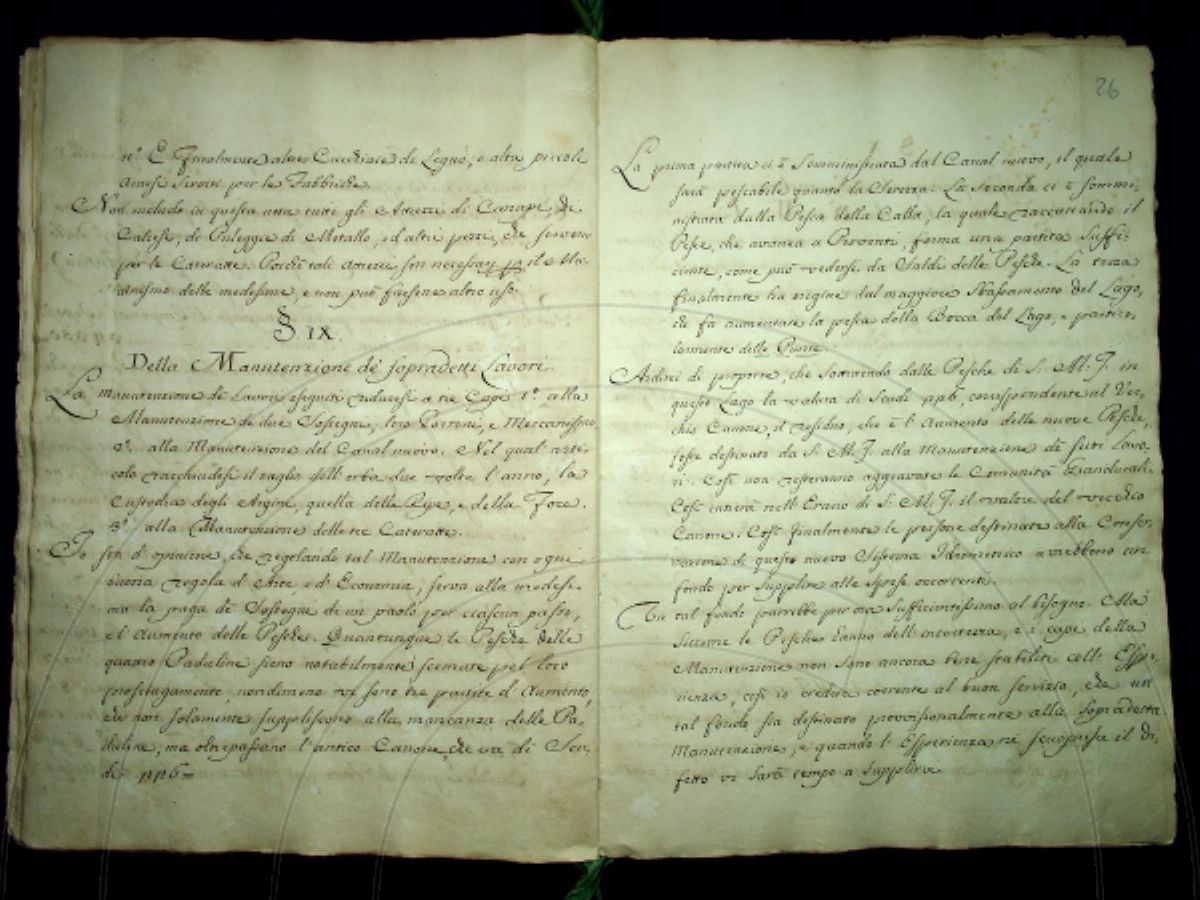 n.° E Finalmente altre Cucchiaie di Legno, e altri piccoli
Arnesi Serviti per le Fabbriche.
Non includo in questa nota tutti gli Attrezzi di Canape, di
Calcese, di Pulegge di Metallo, ed altri pezzi, che servono
per le Cateratte. Poiche tali Attrezzi son necessarj p il Mec-
canismo delle medesime, e non può farsene altro uso.
§. IX.
Della Manutenzione de' sopradetti Lavori
La manutenzione de Lavori eseguiti riducesi a tre Capi 1.° alla
Manutenzione di due Sostegni, loro Portoni, e Meccanismo
2.° alla Manutenzione del Canal nuovo. Nel qual arti-
colo racchiudesi il taglio dell'erba due volte l'anno, la
Custodia degli Argini, quella delle Ripe, e della Foce.
3.° alla Manutenzione delle tre Cateratte.
Io son d'opinione, che regolando tal Manutenzione con ogni
buona regola d'Arte e d'Economia, serva alla medesi-
ma la paga de Sostegni di un paolo per ciascun passo,
e l'Aumento delle Pesche. Quantunque le Pesche delle
quattro Paduline sieno notabilmente scemate pel loro
prosciugamento, nondimeno vi sono tre partite d'Aumento,
che non solamente suppliscono alla mancanza delle Pa-
duline, ma oltrepassano l'antico Canone, che era di Scu-
di
26
La prima partita ci è Somministrata dal Canal nuovo, il quale
sarà pescabile quanto la Serezza. La Seconda ci è sommi-
nistrata dalla Pesca della Calla, la quale raccogliendo il
Pesce, che avanza a forma una partita Suffi-
ciente, come può vedersi da Saldi delle Pesche. La terza
finalmente ha origine dal maggiore del Lago,
che fa aumentare la pesca della Bocca del Lago, e partico-
larmente delle Punte.
Ardirei di proporre, che Sottraendo dalle Pesche di S. M. I. in
questo Lago la valuta di Scudi corrispondente al Vec-
chio Canone, il residuo, che è l'Aumento delle nuove Pesche,
fosse destinato da S. M. I. alla Manutenzione de fatti Lavo-
ri. Così non resteranno aggravate le Comunità Granducali.
Così entrerà nell'Erario di S. M. I. il valore del vecchio
Canone. Così finalmente le persone destinate alla Conser-
vazione di questo nuovo Sistema Idrometrico avrebbono un
fondo per supplire alle spese occorrenti.
Un tal fondo parrebbe per ora Sufficientissimo al bisogno. Ma
Siccome le Pesche hanno dell'incertezza, e i capi della
Manutenzione non sono ancora bene stabiliti coll'Espe-
rienza, così io crederei coerente al buon servizio, che un
tal fondo sia destinato provvisionalmente alla sopradetta
Manutenzione, e quando l'Esperienza ne scuoprisse il di-
fetto vi sarà tempo a supplirvi.